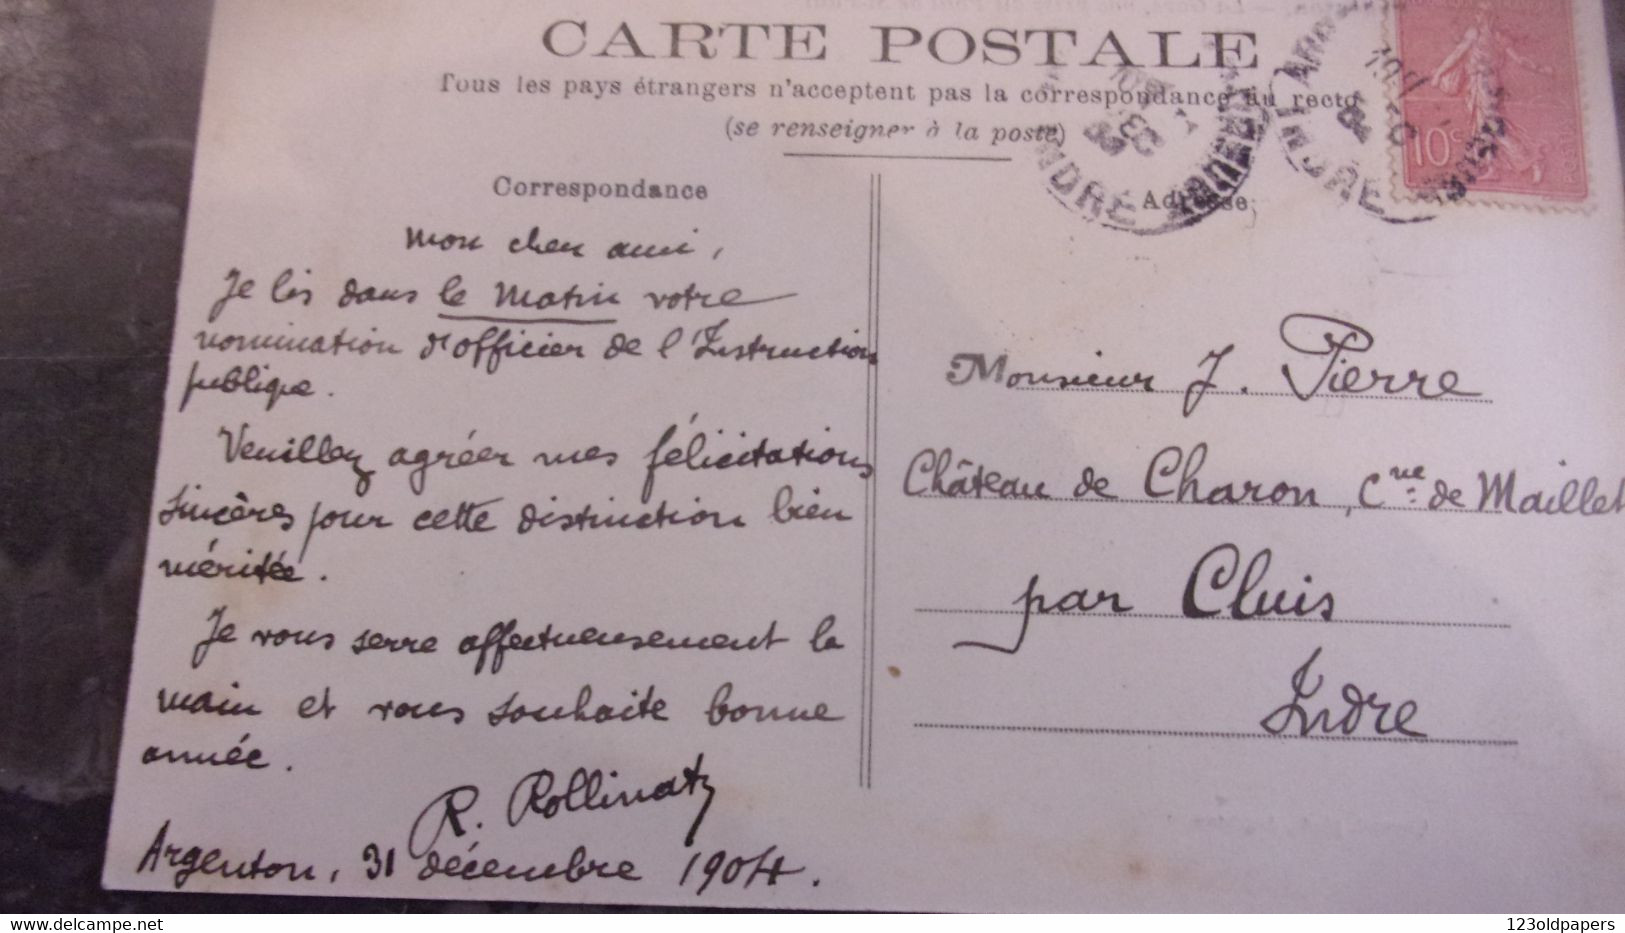 CARTE POSTALE
Tous les pays étrangers n'acceptent pas la correspondance au recto
(se renseigner à la poste)
Correspondance
Mon cher ami,
Je lis dans le Matin votre
nomination d'officier de l'Instruction
publique.
Veuillez agréer mes félicitations
sincères pour cette distinction bien
méritée.
Je vous serre affectueusement la
main et vous souhaite bonne
année.
R. Rollinat
Argenton, 31 décembre 1904.
Adresse
INDRE
INDRE
10c
Monsieur J. Pierre
Château de Charon, Cne de Maillet
par Cluis
Indre
delcampe.net
123oldpapers